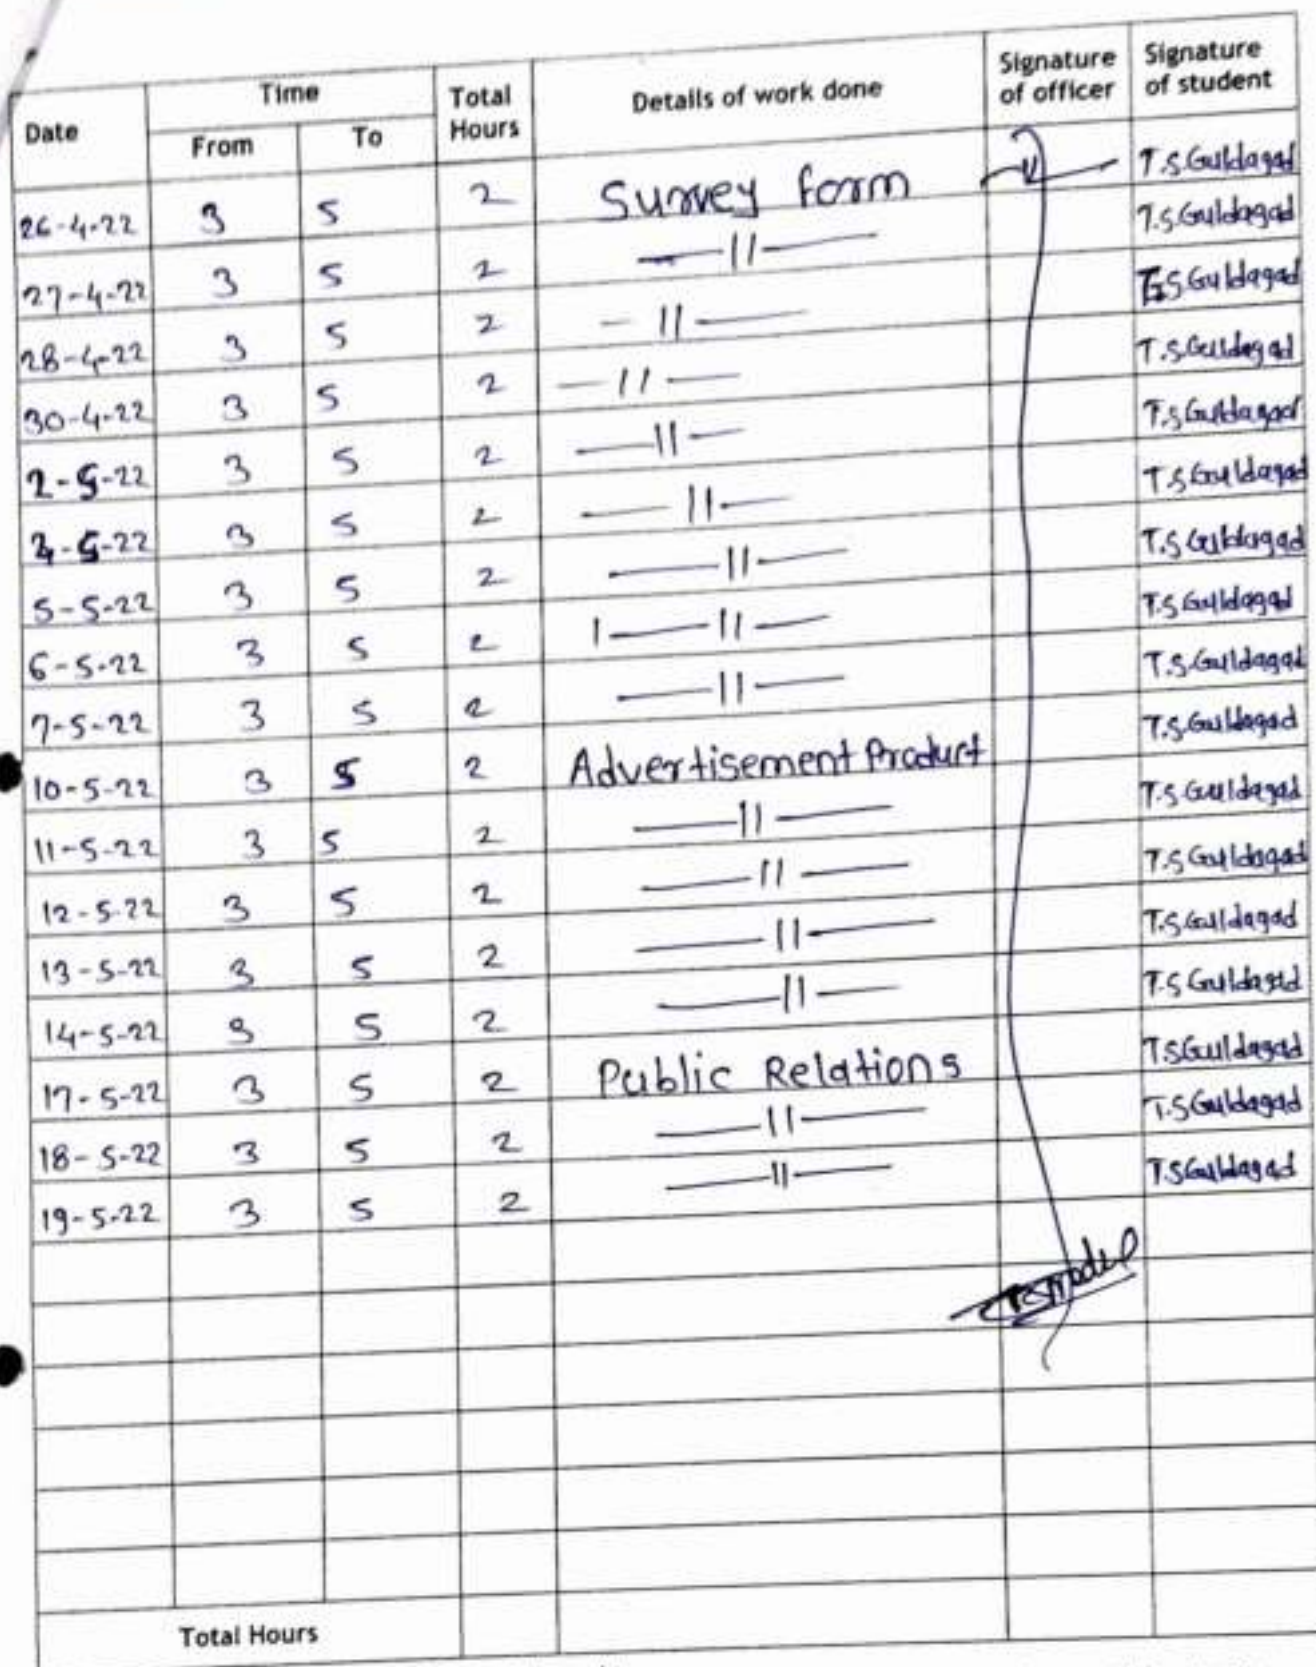 Date Time Total Hours Details of work done Signature of officer Signature of student
From To
26-4-22 3 5 2 Survey form T.S.Guldagad
27-4-22 3 5 2 —11— T.S.Guldagad
28-4-22 3 5 2 —11— T.S.Guldagad
30-4-22 3 5 2 —11— T.S.Guldagad
2-5-22 3 5 2 —11— T.S.Guldagad
5-22 3 5 2 —11— T.S.Guldagad
5-5-22 3 5 2 —11— T.S.Guldagad
6-5-22 3 5 2 —11— T.S.Guldagad
7-5-22 3 5 2 —11— T.S.Guldagad
10-5-22 3 5 2 Advertisement Product T.S.Guldagad
11-5-22 3 5 2 —11— T.S.Guldagad
12-5-22 3 5 2 —11— T.S.Guldagad
13-5-22 3 5 2 —11— T.S.Guldagad
14-5-22 3 5 2 —11— T.S.Guldagad
17-5-22 3 5 2 Public Relations T.S.Guldagad
18-5-22 3 5 2 —11— T.S.Guldagad
19-5-22 3 5 2 —11— T.S.Guldagad
Total Hours